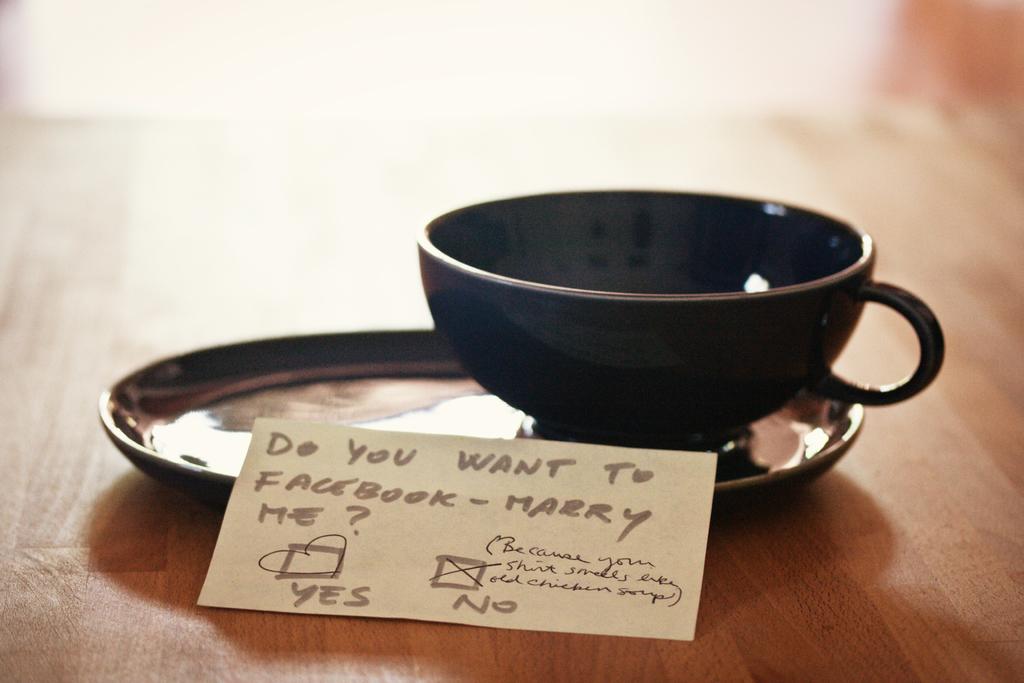 DO YOU WANT TO
FACEBOOK - MARRY
ME ?
(Because your
shirt smells like
old chicken soup)
YES NO